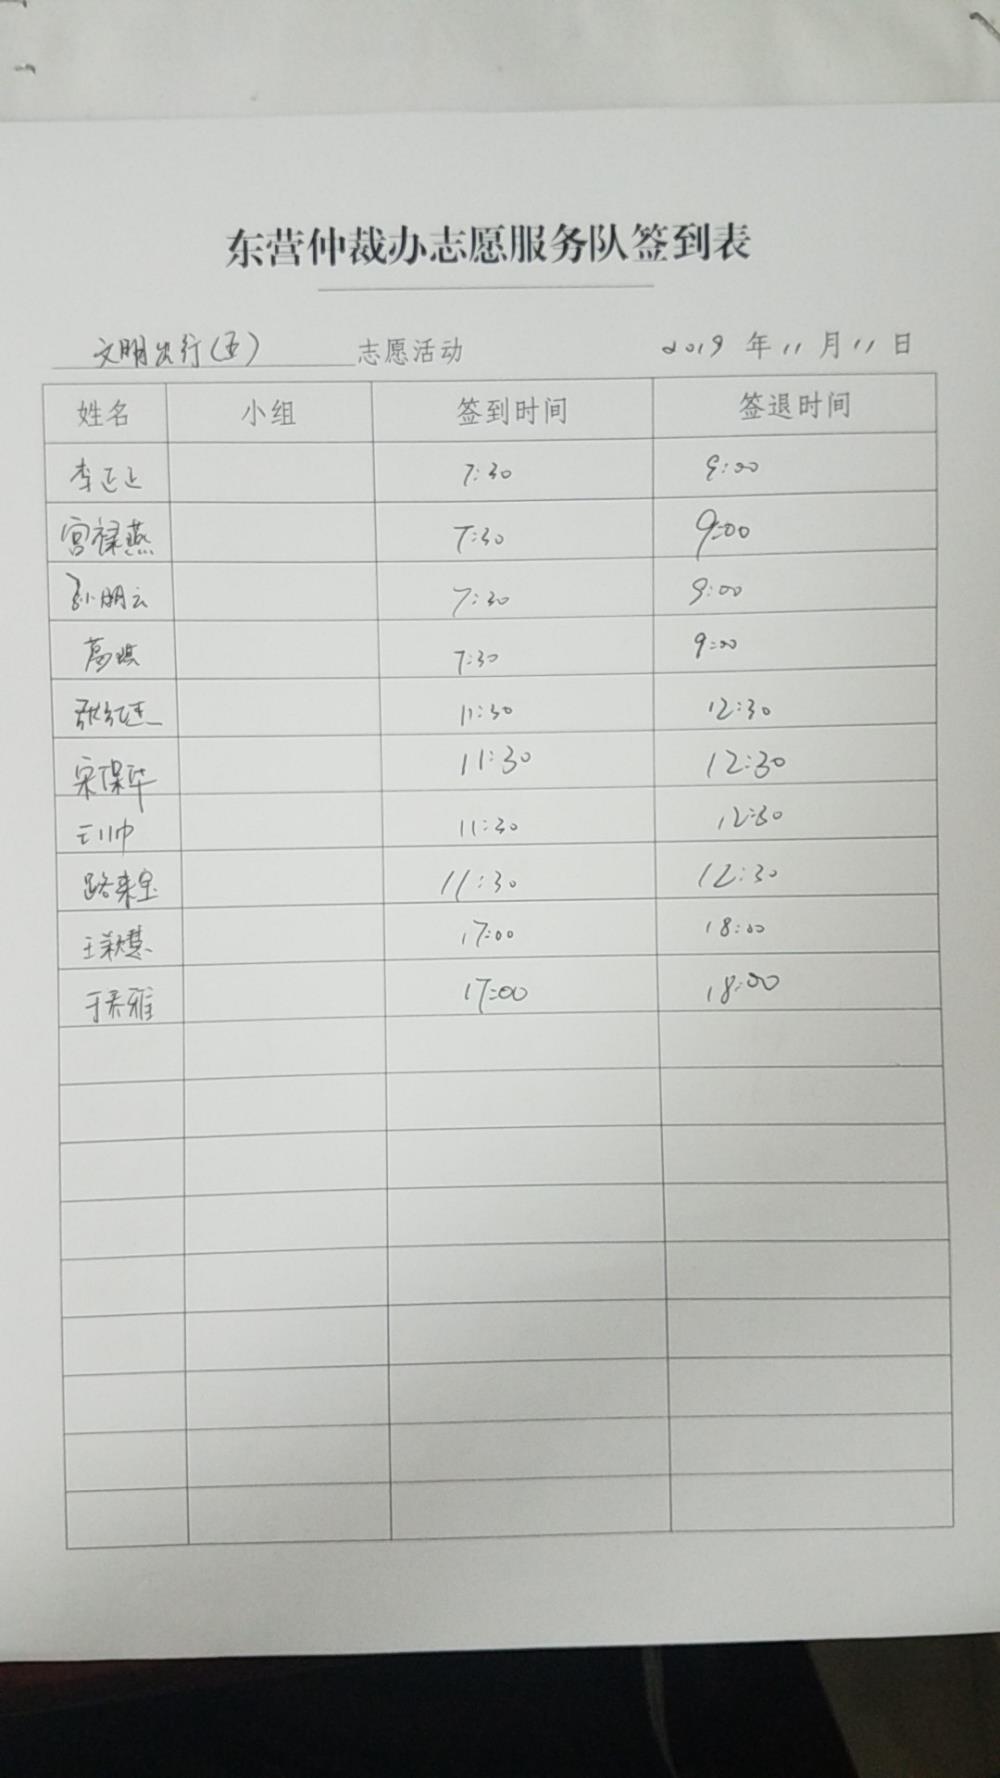 东营仲裁办志愿服务队签到表
文明出行(五) 志愿活动 2019 年 11 月 11 日
姓名 小组 签到时间 签退时间
李正正 7:30 9:00
宫禄燕 7:30 9:00
孙明云 7:30 9:00
葛琪 7:30 9:00
张红 11:30 12:30
宋保华 11:30 12:30
王川帅 11:30 12:30
路来宝 11:30 12:30
王颖慧 17:00 18:00
于君雅 17:00 18:00